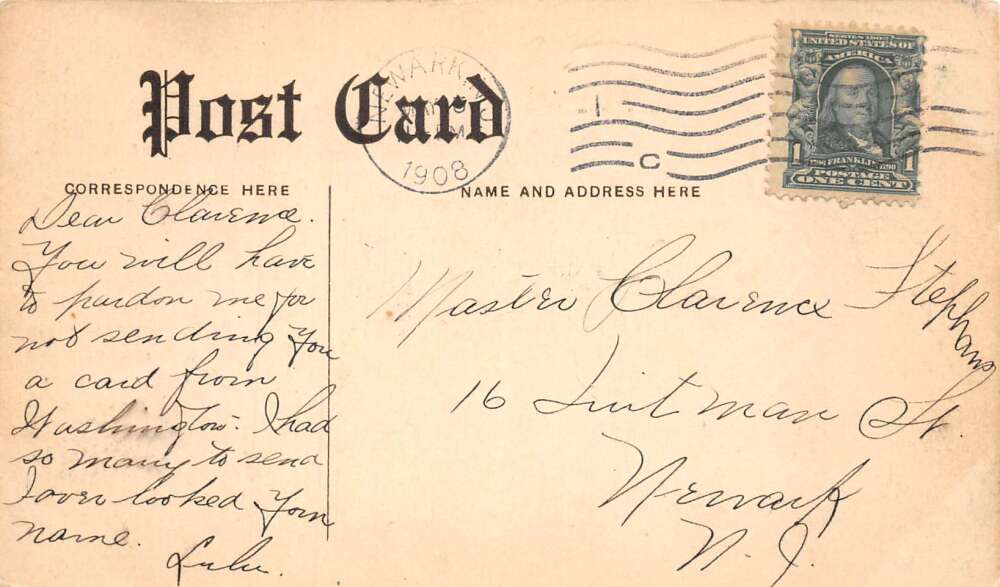 Post Card
NEWARK, N.J.
1908
C
SERIES 1902
UNITED STATES OF
AMERICA
1 1
1706 FRANKLIN 1790
POSTAGE
ONE CENT
CORRESPONDENCE HERE
NAME AND ADDRESS HERE
Dear Clarence.
You will have
to pardon me for
not sending you
a card from
Washington. I had
so many to send
I over looked your
name.
Lulu.
Master Clarence Stephans
16 man St.
Newark
N. J.